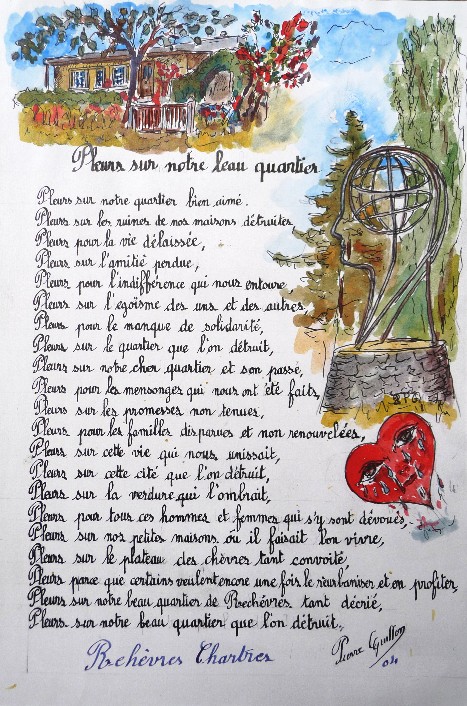 Pleurs sur notre beau quartier
Pleurs sur notre quartier bien aimé.
Pleurs sur les ruines de nos maisons détruites
Pleurs pour la vie délaissée,
Pleurs sur l'amitié perdue,
Pleurs pour l'indifférence qui nous entoure
Pleurs sur l'égoïsme des uns et des autres,
Pleurs pour le manque de solidarité,
Pleurs sur le quartier que l'on détruit,
Pleurs sur notre cher quartier et son passé,
Pleurs pour les mensonges qui nous ont été faits,
Pleurs sur les promesses non tenues,
Pleurs pour les familles disparues et non renouvelées,
Pleurs sur cette vie qui nous unissait,
Pleurs sur cette cité que l'on détruit,
Pleurs sur la verdure qui l'ombrait,
Pleurs pour tous ces hommes et femmes qui s'y sont dévoués,
Pleurs sur nos petites maisons où il faisait bon vivre,
Pleurs sur le plateau des chèvres tant convoité,
Pleurs parce que certains veulent encore une fois le réurbaniser et en profiter,
Pleurs sur notre beau quartier de Rechèvres tant décrié,
Pleurs sur notre beau quartier que l'on détruit.
Rechèvres Chartres
Pierre Guillon
04